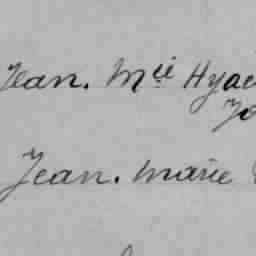 Jean. Mie Hyac
Jo
Jean. marie